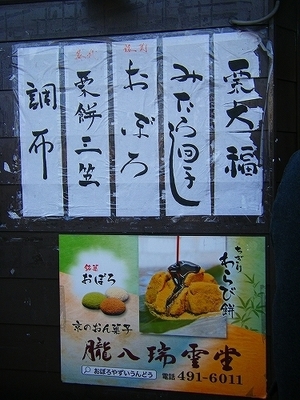 栗大福
みたらし団子
おぼろ
栗餅三笠
調布
ちぎり
わらび餅
銘菓
おぼろ
京のおん菓子
朧八瑞雲堂
おぼろやずいうんどう
電話 491-6011